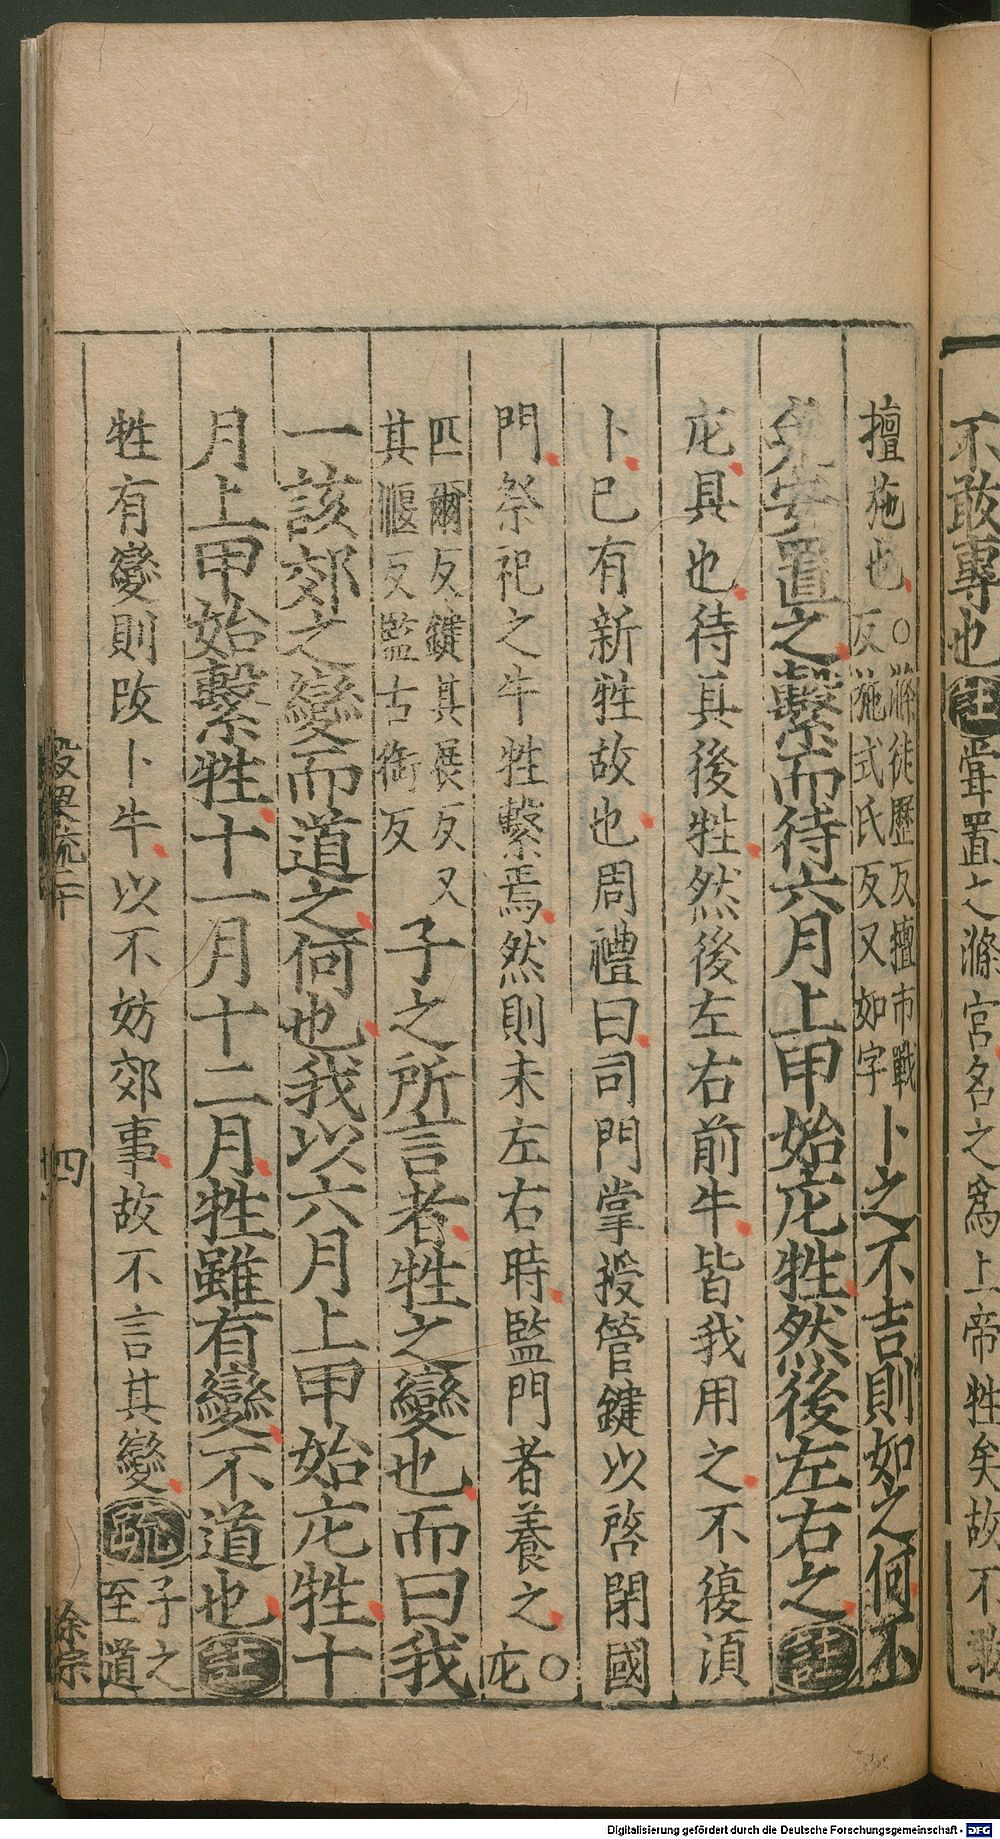 不敢專也註嘗置之滌宮名之爲上帝牲矣故不敢
擅施也○滌徒歷反擅市戰反施式氏反又如字卜之不吉則如之何不
免安置之繫而待六月上甲始庀牲然後左右之註
庀具也待具後牲然後左右前牛皆我用之不復須
卜已有新牲故也周禮曰司門掌授管鍵以啓閉國
門祭祀之牛牲繫焉然則未左右時監門者養之○庀
匹爾反鍵其展反又其偃反監古銜反子之所言者牲之變也而曰我
一該郊之變而道之何也我以六月上甲始庀牲十
月上甲始繫牲十一月十二月牲雖有變不道也註
牲有變則改卜牛以不妨郊事故不言其變疏子之至道
穀梁疏二十
四
余宗
Digitalisierung gefördert durch die Deutsche Forschungsgemeinschaft - DFG